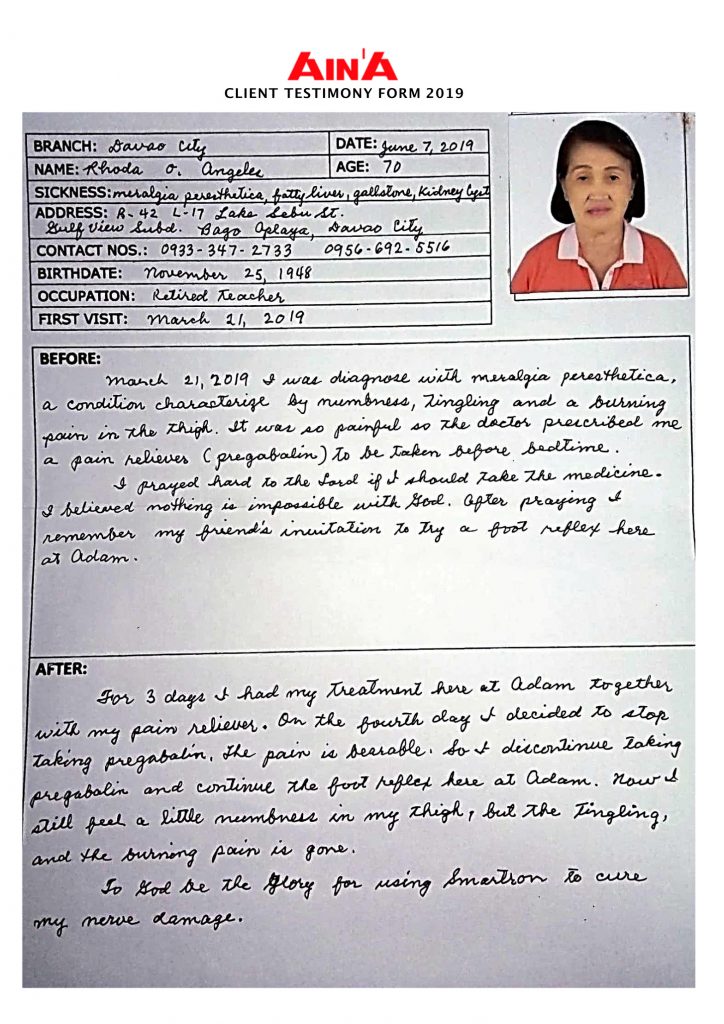 AIN'A
CLIENT TESTIMONY FORM 2019
BRANCH: Davao City DATE: June 7, 2019
NAME: Rhoda O. Angeles AGE: 70
SICKNESS: meralgia peresthetica, fatty liver, gallstone, Kidney Cyst
ADDRESS: R-42 L-17 Lake Sebu St.
Gulf View Subd. Bago Aplaya, Davao City
CONTACT NOS.: 0933-347-2733 0956-692-5516
BIRTHDATE: November 25, 1948
OCCUPATION: Retired Teacher
FIRST VISIT: March 21, 2019
BEFORE:
March 21, 2019 I was diagnose with meralgia peresthetica,
a condition characterize by numbness, tingling and a burning
pain in the thigh. It was so painful so the doctor prescribed me
a pain reliever (pregabalin) to be taken before bedtime.
I prayed hard to the Lord if I should take the medicine.
I believed nothing is impossible with God. After praying I
remember my friend's invitation to try a foot reflex here
at Adam.
AFTER:
For 3 days I had my treatment here at Adam together
with my pain reliever. On the fourth day I decided to stop
taking pregabalin, the pain is bearable. So I discontinue taking
pregabalin and continue the foot reflex here at Adam. Now I
still feel a little numbness in my thigh, but the tingling,
and the burning pain is gone.
To God be the Glory for using Smartron to cure
my nerve damage.